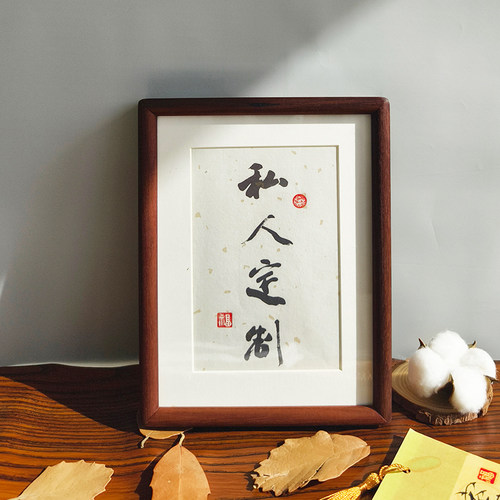 私人定制
福